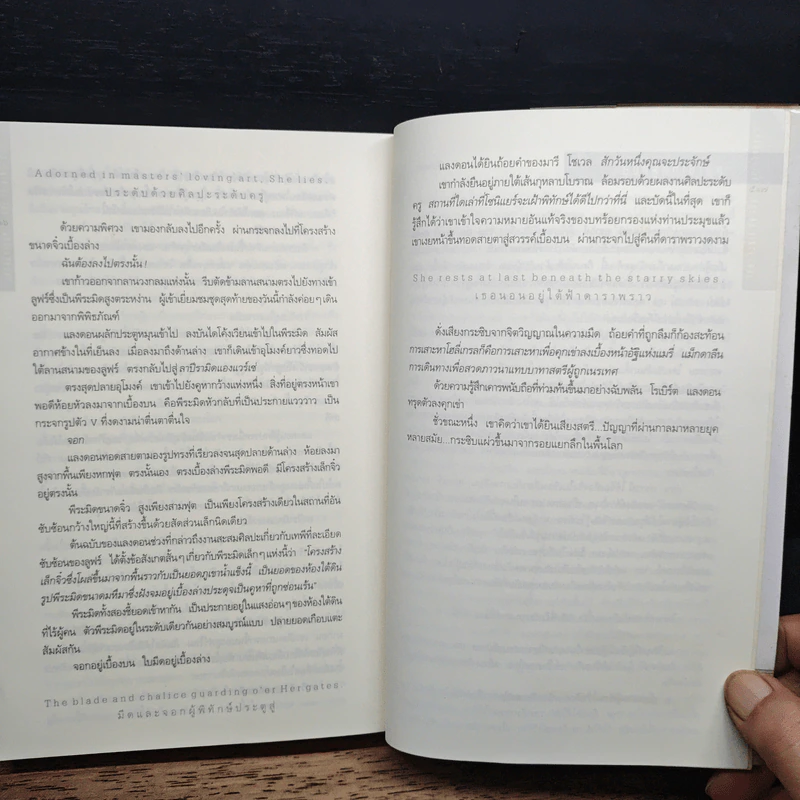 Adorned in masters' loving art, She lies.
ประดับด้วยศิลปะระดับครู
ด้วยความพิศวง เขามองกลับลงไปอีกครั้ง ผ่านกระจกลงไปที่โครงสร้าง
ขนาดจิ๋วเบื้องล่าง
ฉันต้องลงไปตรงนั้น!
เขาก้าวออกจากลานวงกลมแห่งนั้น รีบตัดข้ามลานสนามตรงไปยังทางเข้า
ลูฟร์ซึ่งเป็นพีระมิดสูงตระหง่าน ผู้เข้าเยี่ยมชมชุดสุดท้ายของวันนี้กำลังค่อยๆ เดิน
ออกมาจากพิพิธภัณฑ์
แลงดอนผลักประตูหมุนเข้าไป ลงบันไดโค้งเวียนเข้าไปในพีระมิด สัมผัส
อากาศข้างในที่เย็นลง เมื่อลงมาถึงด้านล่าง เขาก็เดินเข้าอุโมงค์ยาวซึ่งทอดไป
ใต้ลานสนามของลูฟร์ ตรงกลับไปสู่ ลาปิรามิดแองแวร์เซ่
ตรงสุดปลายอุโมงค์ เขาเข้าไปยังคูหากว้างแห่งหนึ่ง สิ่งที่อยู่ตรงหน้าเขา
พอดีห้อยหัวลงมาจากเบื้องบน คือพีระมิดหัวกลับที่เป็นประกายแวววาว เป็น
กระจกรูปตัว V ที่งดงามน่าตื่นตาตื่นใจ
จอก
แลงดอนทอดสายตามองรูปทรงที่เรียวลงจนสุดปลายด้านล่าง ห้อยลงมา
สูงจากพื้นเพียงหกฟุต ตรงนั้นเอง ตรงเบื้องล่างพีระมิดพอดี มีโครงสร้างเล็กจิ๋ว
อยู่ตรงนั้น
พีระมิดขนาดจิ๋ว สูงเพียงสามฟุต เป็นเพียงโครงสร้างเดียวในสถานที่อัน
ซับซ้อนกว้างใหญ่นี้ที่สร้างขึ้นด้วยสัดส่วนเล็กนิดเดียว
ต้นฉบับของแลงดอนช่วงที่กล่าวถึงงานสะสมศิลปะเกี่ยวกับเทพีที่ละเอียด
ซับซ้อนของลูฟร์ ได้ตั้งข้อสังเกตสั้นๆ เกี่ยวกับพีระมิดเล็กๆ แห่งนี้ว่า "โครงสร้าง
เล็กจิ๋วซึ่งโผล่ขึ้นมาจากพื้นราวกับเป็นยอดภูเขาน้ำแข็งนี้ เป็นยอดของห้องใต้ดิน
รูปพีระมิดขนาดมหึมาซึ่งฝังจมอยู่เบื้องล่างประดุจเป็นคูหาที่ถูกซ่อนเร้น"
พีระมิดทั้งสองชี้ยอดเข้าหากัน เป็นประกายอยู่ในแสงอ่อนๆ ของห้องใต้ดิน
ที่ไร้ผู้คน ตัวพีระมิดอยู่ในระดับเดียวกันอย่างสมบูรณ์แบบ ปลายยอดเกือบแตะ
สัมผัสกัน
จอกอยู่เบื้องบน ใบมีดอยู่เบื้องล่าง
The blade and chalice guarding o'er Her gates.
มีดและจอกผู้พิทักษ์ประตูสู่
แลงดอนได้ยินถ้อยคำของมารี โชเวล สักวันหนึ่งคุณจะประจักษ์
เขากำลังยืนอยู่ภายใต้เส้นกุหลาบโบราณ ล้อมรอบด้วยผลงานศิลปะระดับ
ครู สถานที่ใดเล่าที่โซนิแยร์จะเฝ้าพิทักษ์ได้ดีไปกว่าที่นี่ และบัดนี้ในที่สุด เขาก็
รู้สึกได้ว่าเขาเข้าใจความหมายอันแท้จริงของบทร้อยกรองแห่งท่านประมุขแล้ว
เขาเงยหน้าขึ้นทอดสายตาสู่สวรรค์เบื้องบน ผ่านกระจกไปสู่คืนที่ดาราพราวงดงาม
She rests at last beneath the starry skies.
เธอนอนอยู่ใต้ฟ้าดาราพราว
ดั่งเสียงกระซิบจากจิตวิญญาณในความมืด ถ้อยคำที่ถูกลืมก็ก้องสะท้อน
การเสาะหาโฮลี่เกรลก็คือการเสาะหาเพื่อคุกเข่าลงเบื้องหน้าอัฐิแห่งแมรี่ แม็กดาลีน
การเดินทางเพื่อสวดภาวนาแทบบาทาสตรีผู้ถูกเนรเทศ
ด้วยความรู้สึกเคารพนับถือที่ท่วมท้นขึ้นมาอย่างฉับพลัน โรเบิร์ต แลงดอน
ทรุดตัวลงคุกเข่า
ชั่วขณะหนึ่ง เขาคิดว่าเขาได้ยินเสียงสตรี...ปัญญาที่ผ่านกาลมาหลายยุค
หลายสมัย...กระซิบแผ่วขึ้นมาจากรอยแยกลึกในพื้นโลก